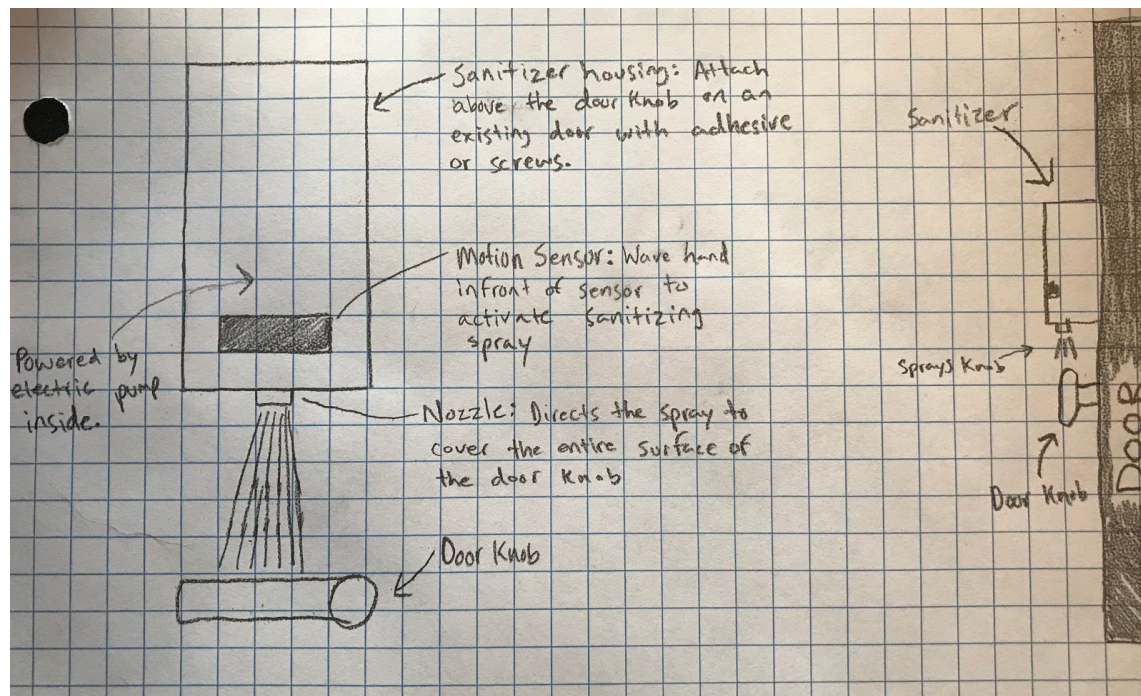 Sanitizer housing: Attach
above the door knob on an
existing door with adhesive
or screws.
Motion Sensor: Wave hand
infront of sensor to
activate sanitizing
spray
Powered by
electric pump
inside.
Nozzle: Directs the spray to
cover the entire surface of
the door knob
Door Knob
Sanitizer
Sprays Knob
Door Knob
DOOR